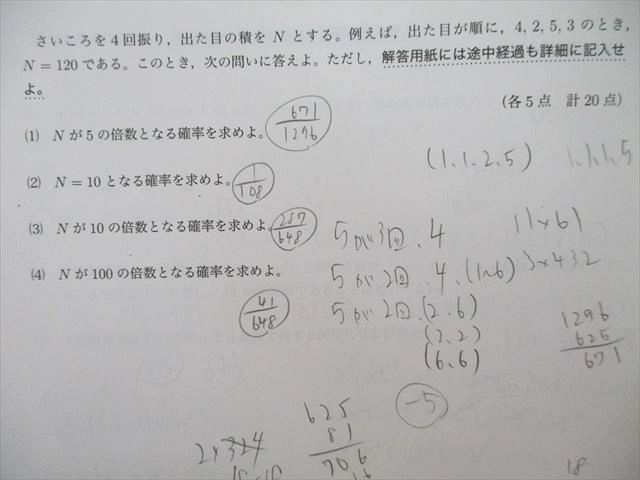 さいころを4回振り,出た目の積を N とする。例えば,出た目が順に,4, 2, 5, 3 のとき,
N = 120 である。このとき,次の問いに答えよ。ただし,解答用紙には途中経過も詳細に記入せ
よ。
(各5点 計20点)
(1) N が 5 の倍数となる確率を求めよ。 671/1296
(1,1,2,5) 1,1,1,5
(2) N = 10 となる確率を求めよ。 1/108
(3) N が 10 の倍数となる確率を求めよ。 287/648
5が3回、4 11×61
(4) N が 100 の倍数となる確率を求めよ。
5が2回、4、(1~6) 3×432
41/648
5が2回、(2,6)
(2,2)
(6,6)
1296
625
671
-5
625
81
706
2×324
18